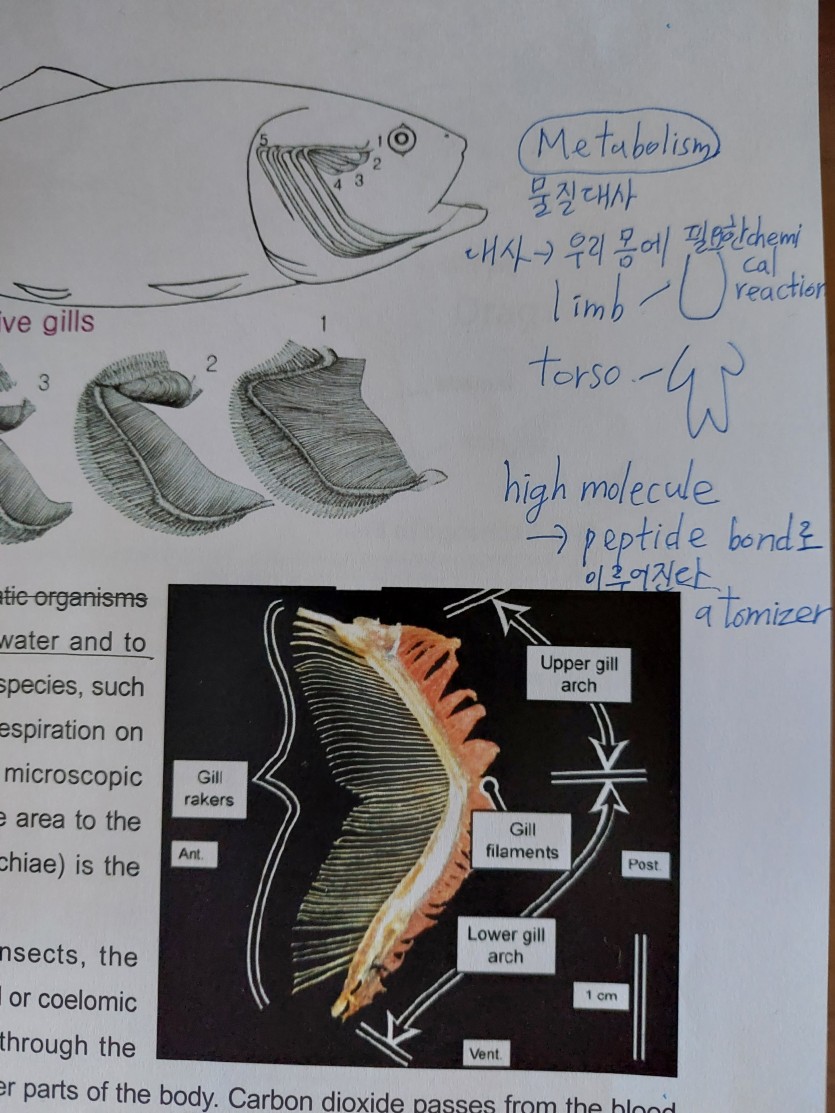 Metabolism
물질대사
대사→ 우리 몸에 필요한 chemi
cal
reaction
limb
torso
high molecule
→ peptide bond로
이루어진다
atomizer
5 1
2
4 3
ive gills
3 2 1
atic organisms
water and to
species, such
espiration on
microscopic
e area to the
chiae) is the
nsects, the
or coelomic
through the
er parts of the body. Carbon dioxide passes from the blood
Upper gill
arch
Gill
rakers
Ant.
Gill
filaments
Post.
Lower gill
arch
1 cm
Vent.